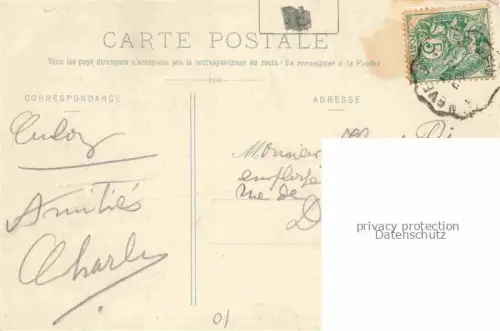 CARTE POSTALE
Tous les pays étrangers n'acceptent pas la correspondance au recto (Se renseigner à la Poste)
CORRESPONDANCE
ADRESSE
5
NEVE
Monsieur
employé
rue de
D
Amitiés
Charles
privacy protection
Datenschutz
01